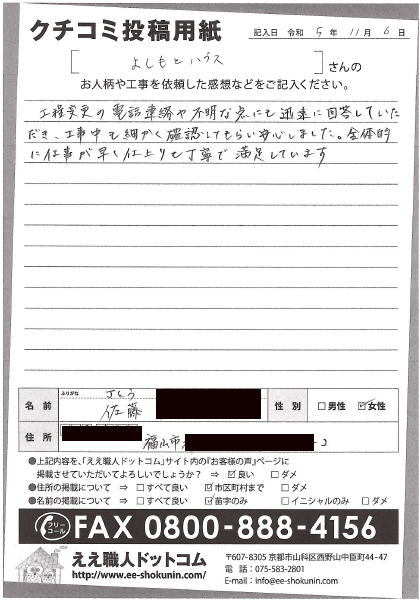 クチコミ投稿用紙
記入日 令和 5年 11月 6日
[ よしもとハウス ] さんの
お人柄や工事を依頼した感想などをご記入ください。
工程変更の電話連絡や不明な点にも迅速に回答していた
だき、工事中も細かく確認してもらい安心しました。全体的
に仕事が早く仕上りも丁寧で満足しています
名前 ふりがな さとう
佐藤
性別 □男性 ☑女性
住所 福山市
●上記内容を、「ええ職人ドットコム」サイト内の『お客様の声』ページに
掲載させていただいてよろしいでしょうか? ⇒ ☑良い □ダメ
●住所の掲載について ⇒ □すべて良い ☑市区町村まで □ダメ
●名前の掲載について ⇒ □すべて良い ☑苗字のみ □イニシャルのみ □ダメ
フリーコール FAX 0800-888-4156
ええ職人ドットコム
http://www.ee-shokunin.com/
〒607-8305 京都市山科区西野山中臣町44-47
電話:075-583-2801
E-mail:info@ee-shokunin.com